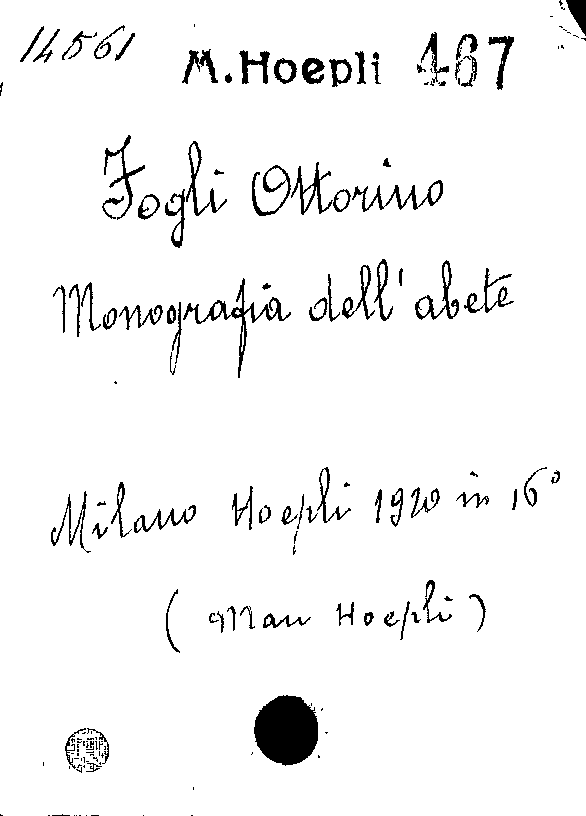 14561
M. Hoepli 467
Fogli Ottorino
Monografia dell'abete
Milano Hoepli 1920 in 16°
(Man Hoepli)